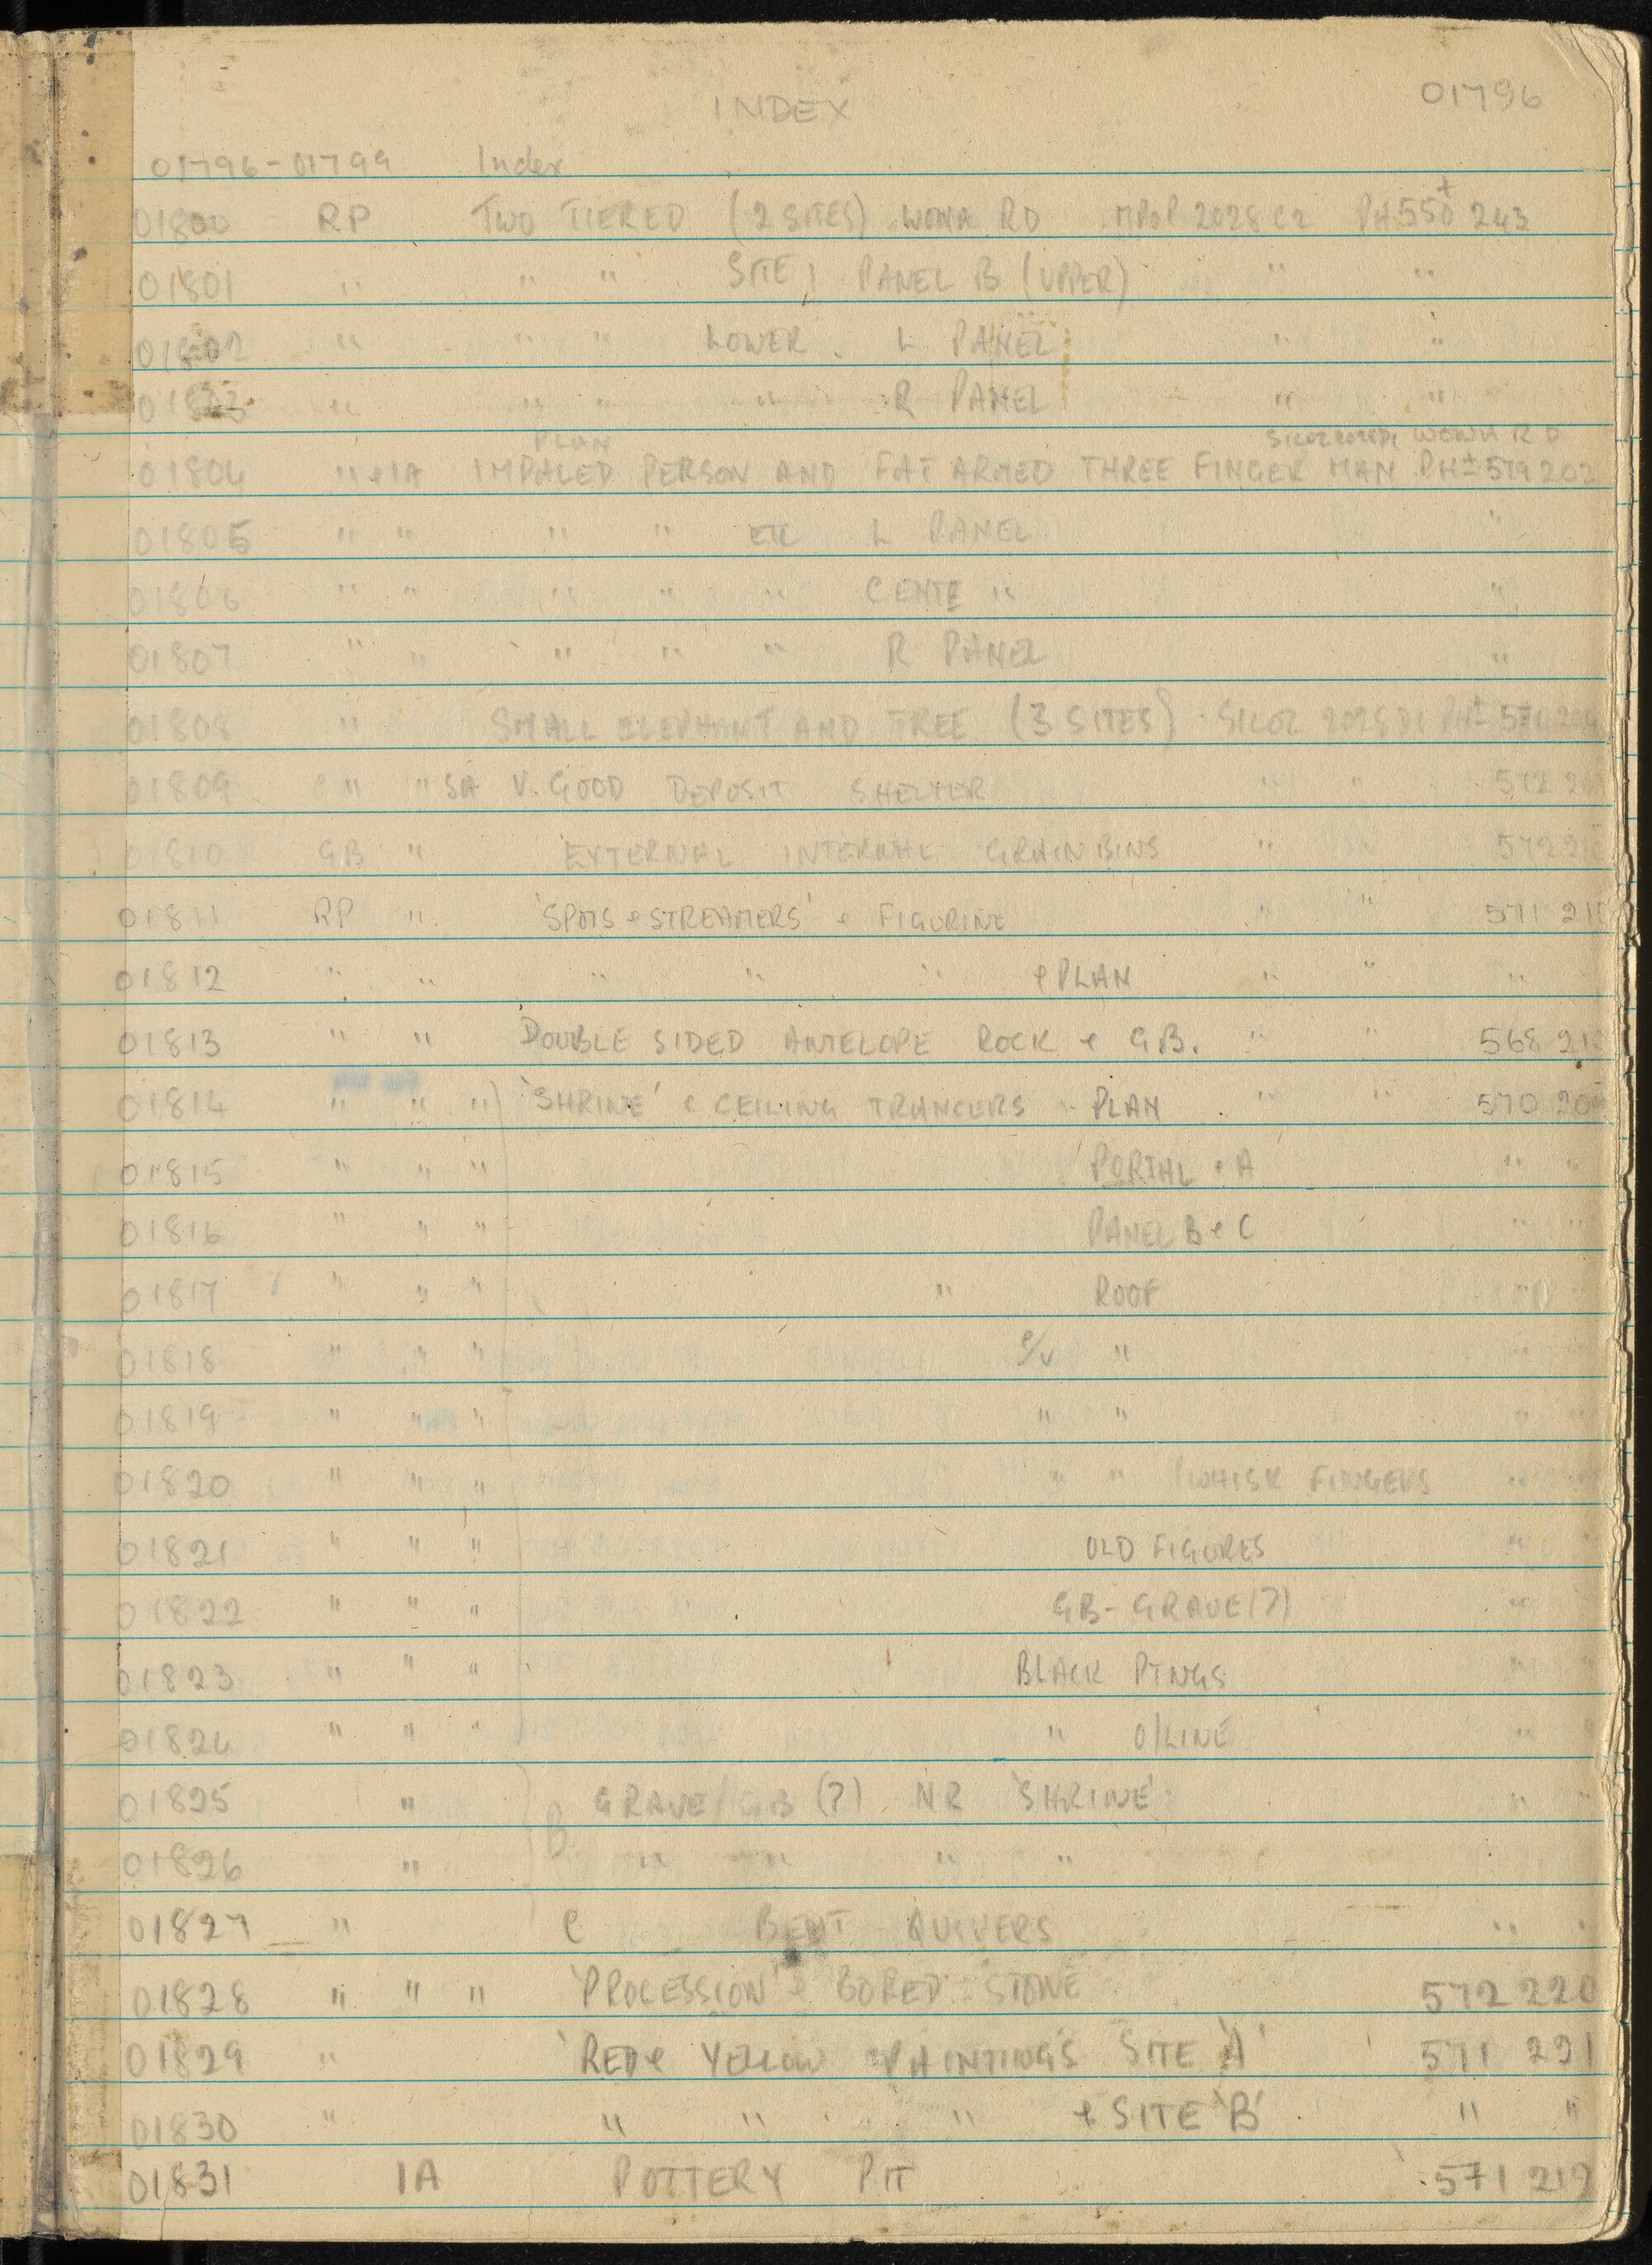 INDEX 01796
01796-01799 Index
01800 RP TWO TIERED (2 SITES) WOMA RD 2028 C2 PH 550± 243
01801 " " " SITE 1 PANEL B (UPPER) " "
01802 " " " LOWER L PANEL " "
01803 " " " " R PANEL " "
PLAN 2028D1 WOMA RD
01804 " & IA IMPALED PERSON AND FAT ARMED THREE FINGER MAN PH± 579 202
01805 " " " " ETC L PANEL "
01806 " " " " " CENTE " "
01807 " " " " " R PANEL "
01808 " SMALL ELEPHANT AND TREE (3 SITES) SILOZ 2028D1 PH±
01809 " " SA V. GOOD DEPOSIT SHELTER " " 572
01810 GB " EXTERNAL INTERNAL GRAINBINS " " 572
01811 RP " 'SPOTS & STREAMERS' & FIGURINE " " 571 211
01812 " " " " " & PLAN " " "
01813 " " DOUBLE SIDED ANTELOPE ROCK & G.B. " " 568
01814 " " " 'SHRINE' & CEILING TRANCERS - PLAN " " 570
01815 " " " PORTAL & A " "
01816 " " " PANEL B & C " "
01817 " " " " ROOF "
01818 " " " c/u " " "
01819 " " " " " " "
01820 " " " " " WHISK FINGERS " "
01821 " " " OLD FIGURES " "
01822 " " " GB-GRAVE(?) "
01823 " " " BLACK PTNGS " "
01824 " " " " O/LINE " "
01825 " GRAVE/GB (?) NR 'SHRINE' " "
01826 " B " " " "
01827 " C BENT QUIVERS " "
01828 " " " 'PROCESSION' & BORED STONE 572 220
01829 " 'RED & YELLOW PAINTINGS SITE 'A' 571 221
01830 " " " " & SITE 'B' " "
01831 IA POTTERY PIT 571 219